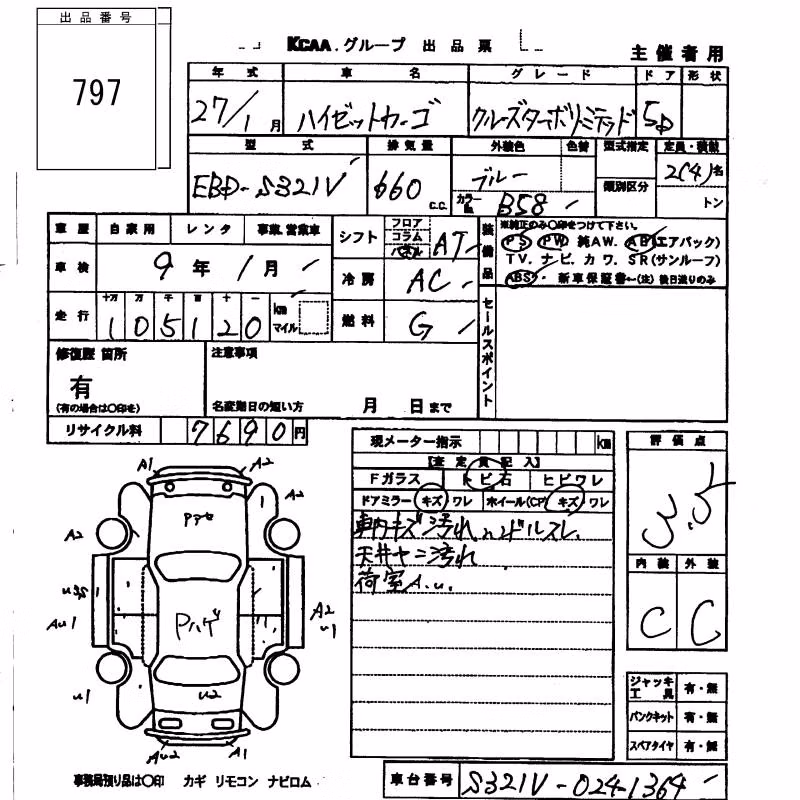 出品番号
797
KCAA.グループ 出品票
主催者用
年式 車名 グレード ドア 形状
27/1月 ハイゼットカーゴ クルーズターボリミテッド 5D
型式 排気量 外装色 色替 型式指定 定員・積載
EBD-S321V 660 c.c. ブルー 類別区分 2(4)名
カラーNo. B58 トン
車歴 自家用 レンタ 事業.営業車
車検 9年1月
走行 十万 万 千 百 十 一 km マイル
105120
シフト フロア コラム パネル AT
冷房 AC
燃料 G
装備品 ※純正のみ〇印をつけて下さい。
PS PW 純AW. AB(エアバック)
TV. ナビ. カワ. SR(サンルーフ)
ABS. 新車保証書←(注)後日送りのみ
セールスポイント
修復歴 箇所 注意事項
有
(有の場合は〇印を) 名変期日の短い方 月 日まで
リサイクル料 7690円
現メーター指示 km
【査定員記入】
Fガラス トビ石 ヒビワレ
ドアミラー キズ ワレ ホイール(CP) キズ ワレ
車内キズ汚れ ハンドルスレ
天井ヤニ汚れ
荷室A.u.
評価点
3.5
内装 外装
C C
ジャッキ工具 有・無
パンクキット 有・無
スペアタイヤ 有・無
A1 A2
A2
Pアセ
A2
u3S
Au1
Pハゲ
A2
u1
u1
u2
Au2 A1
事務局預り品は〇印 カギ リモコン ナビロム
車台番号 S321V-0241364